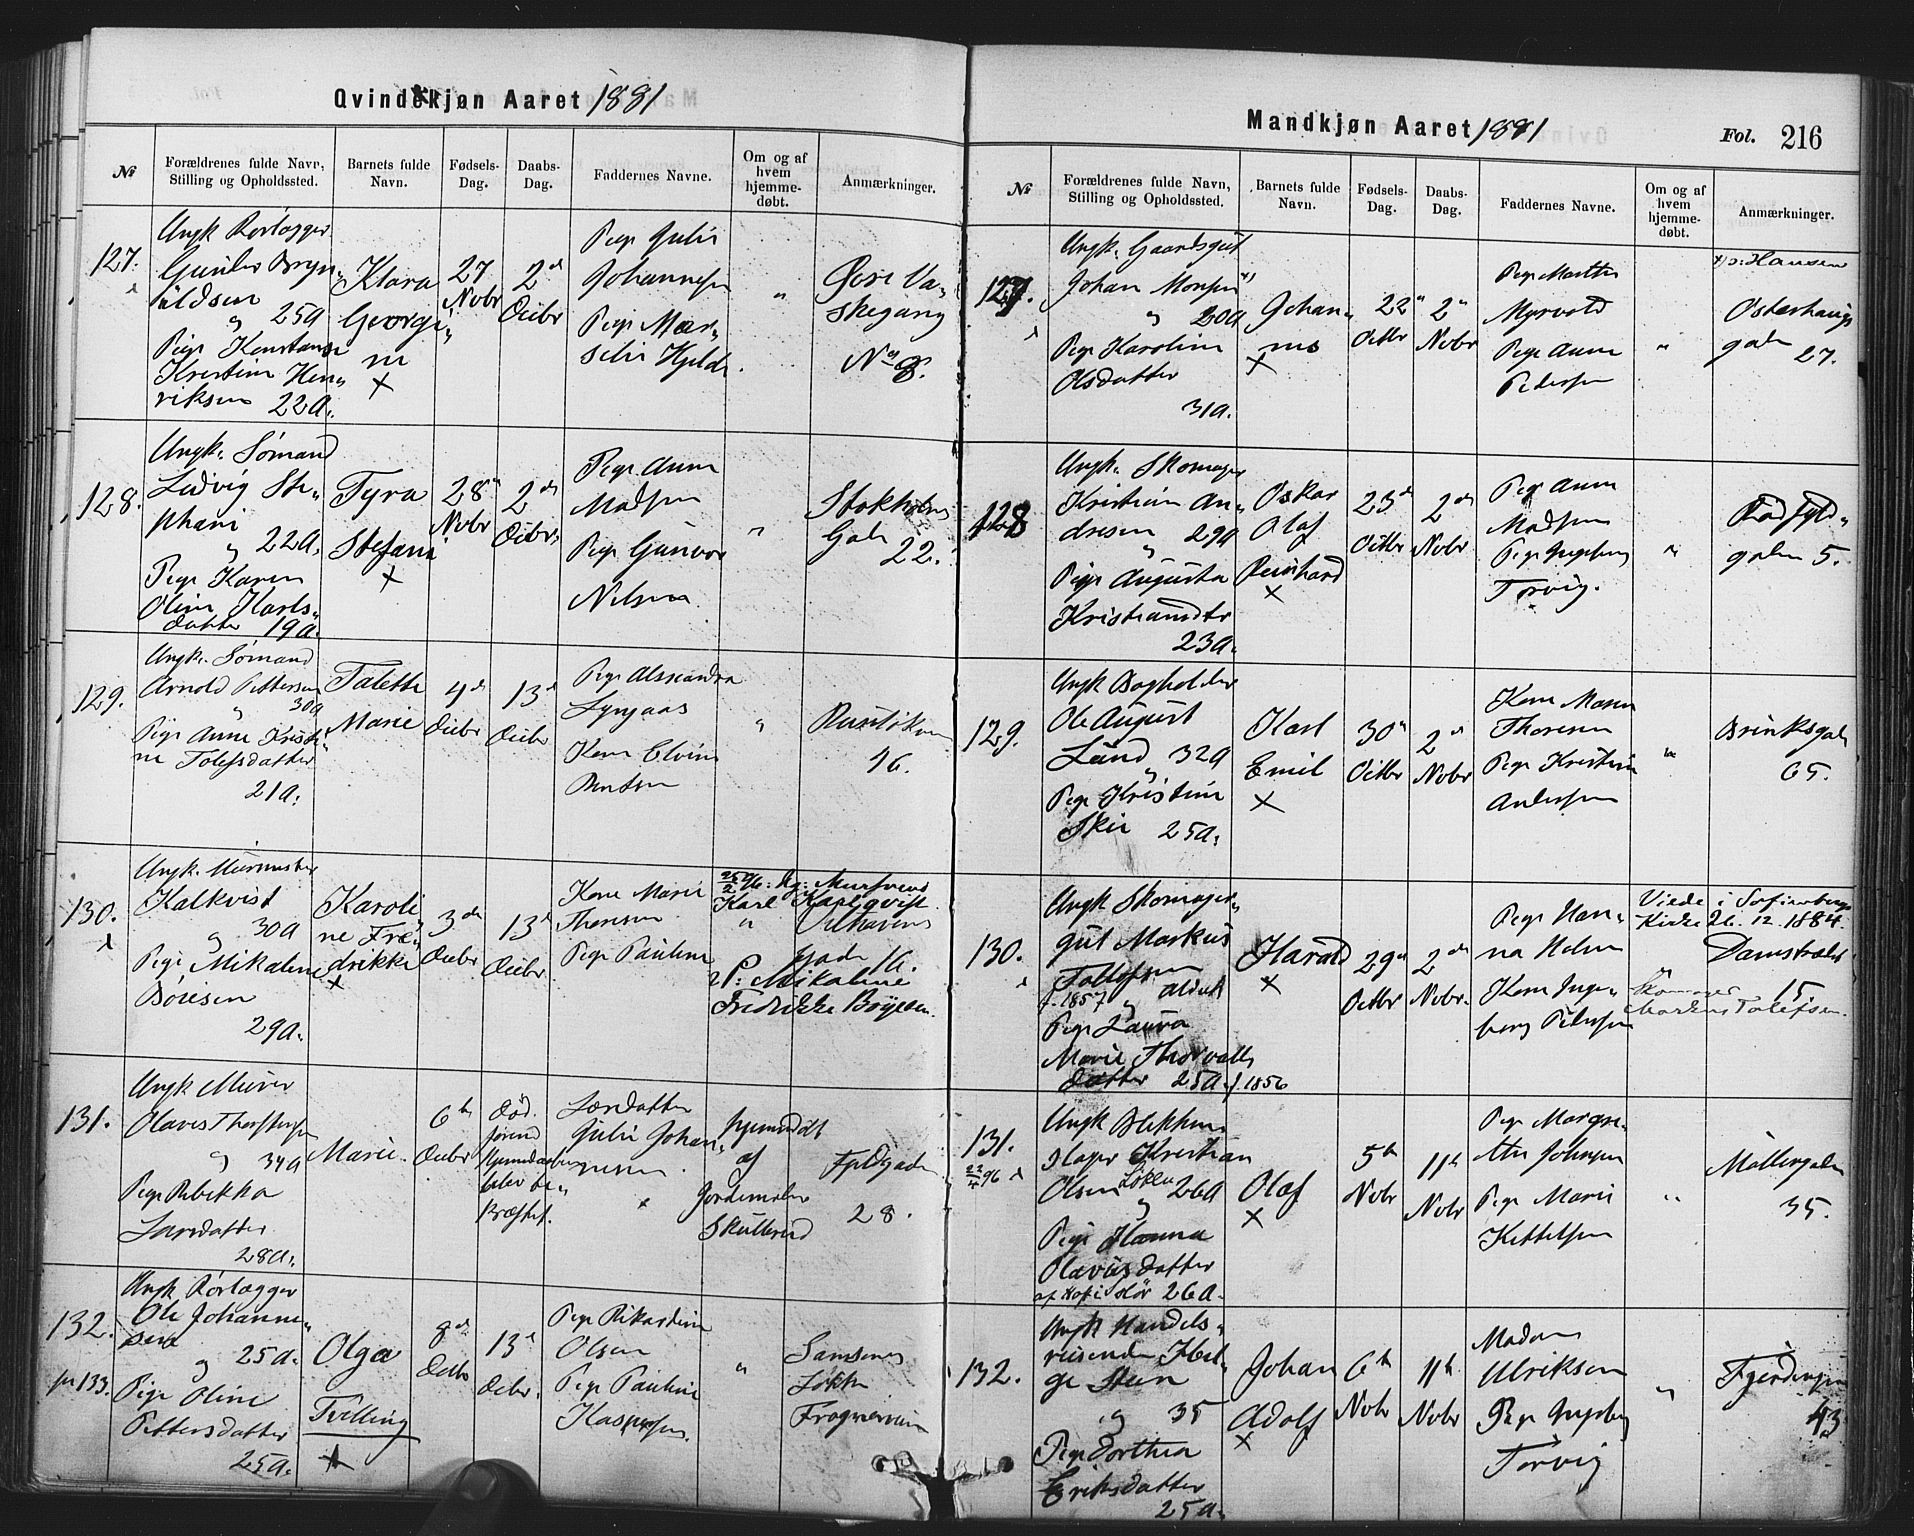 Qvindekjøn Aaret 1881
№
Forældrenes fulde Navn,
Stilling og Opholdssted.
Barnets fulde
Navn.
Fødsels-
Dag.
Daabs-
Dag.
Faddernes Navne.
Om og af
hvem
hjemme-
døbt.
Anmærkninger.
127.
Ungk Rørlægger
25a
Pige
Kristine Hen„
riksen 22a.
Klara
Georgi„
ne
×
27
Novbr
2d
Decbr
Pige Julie
Johannesen
Pige
"
Øvre Va„
skegang
No 8.
128.
Ungk. Sømand
Ludvig Ste„
phani
og 22a.
Pige Karen
Oline Karls„
datter 19a.
Tyra
Stefana
×
28
Novbr
2den
Decbr.
Pige Anne
Madsen
Pige Gunvor
Nilsen
"
Stokholms
Gade
22.
129.
Ungk. Sømand
Arnold Pettersen
og 30a
Pige Anne Kristi„
ne Tolefsdatter
21a.
Talette
Marie
4de
Decbr
13d
Decbr
Pige
Kone Elvine
"
16.
130.
Ungk. Murmester
Kalkvist
og 30a
Pige Mikaline
Børesen
29a.
Karoli„
ne Fre„
drikke
×
3die
Decbr
13d
Decbr.
Kone Marie
Thoresen
Pige Pauline
"
Karl
gade 16.
P: Mikaline
Fredrikke Bøyesen
131.
Ungk Murer
Olaves Thorstensen
og 34a
Pige Rebekka
Larsdatter
28a.
Marie.
6te
Decbr
død.
Larsdatter
Julie Johan„
nesen
hjemmedøbt
af
Jordemoder
Skullerud
28.
132.
Ungk Rørlægger
Ole Johanne„
sen
og 25a.
Pige Oline
Pettersdatter
25a.
133.
Olga
Tvilling
×
8de
Decbr
13d
Decbr.
Pige Rikardine
Olsen
Pige Pauline
Kaspersen.
"
Løkke
Mandkjøn Aaret 1881
Fol. 216
№
Forældrenes fulde Navn,
Stilling og Opholdssted.
Barnets fulde
Navn.
Fødsels-
Dag.
Daabs-
Dag.
Faddernes Navne.
Om og af
hvem
hjemme-
døbt.
Anmærkninger.
127.
Ungk. Gaardsgut
Johan Monsen
og 30a
Pige Karoline
Olsdatter
31a.
Johan„
nes
×
22
Octbr
2
Novbr
Pige Marthe
Myrvold
Pige Anne
Pedersen
"
Hansen
Osterhaugs
gaden
27.
128
Ungk. Skomager
Kristian An„
dresen og 29a
Pige Augusta
Kristiansdtr
23a.
Oskar
Olaf
Reinhard
×
23d
Octbr
2den
Novbr
Pige Anne
Madsen
Pige Ingeborg
Torvig.
"
gaden 5.
129.
Ungk Bogholder
Ole August
Lund og 32a
Pige Kristine
Skie 25a.
Karl
Emil
×
30
Octbr
2d
Novbr
Kone Maren
Thoresen
Pige Kristine
Andersen
"
Brinksgaden
65.
130.
Ungk Skomager„
gut Markus
Tollefsen
f. 1857 og
Pige Laura
Marie Thorvalds
datter 25a. f. 1856
Harald
×
29d
Octbr
2den
Novbr.
Pige Han„
na Holm
Kone Inge„
borg Pedersen
Viede i Sofienberg
Kirke 26. 12. 1884.
Damstrædet
15
Skomager
Markus Tolefsen.
131.
22/4 96
Ungk Blikken„
slager Kristian
Olsen Løkke
og 26a
Pige Hanna
Olavusdatter
af Hof i Solør 26a.
Olaf
×
5te
Novbr
11te
Novbr
Pige Margre„
the Johnsen
Pige Marie
Kittelsen
"
Møllergaden
35.
132.
Ungk Handels„
reisende Hel„
ge Steen
og 35
Pige Dorthea
Eriksdatter
25a.
Johan
Adolf
×
6te
Novbr
11te
Novbr
Madam
Ulriksen
Pige Ingeborg
Torvig
"
Fjerdingen
43